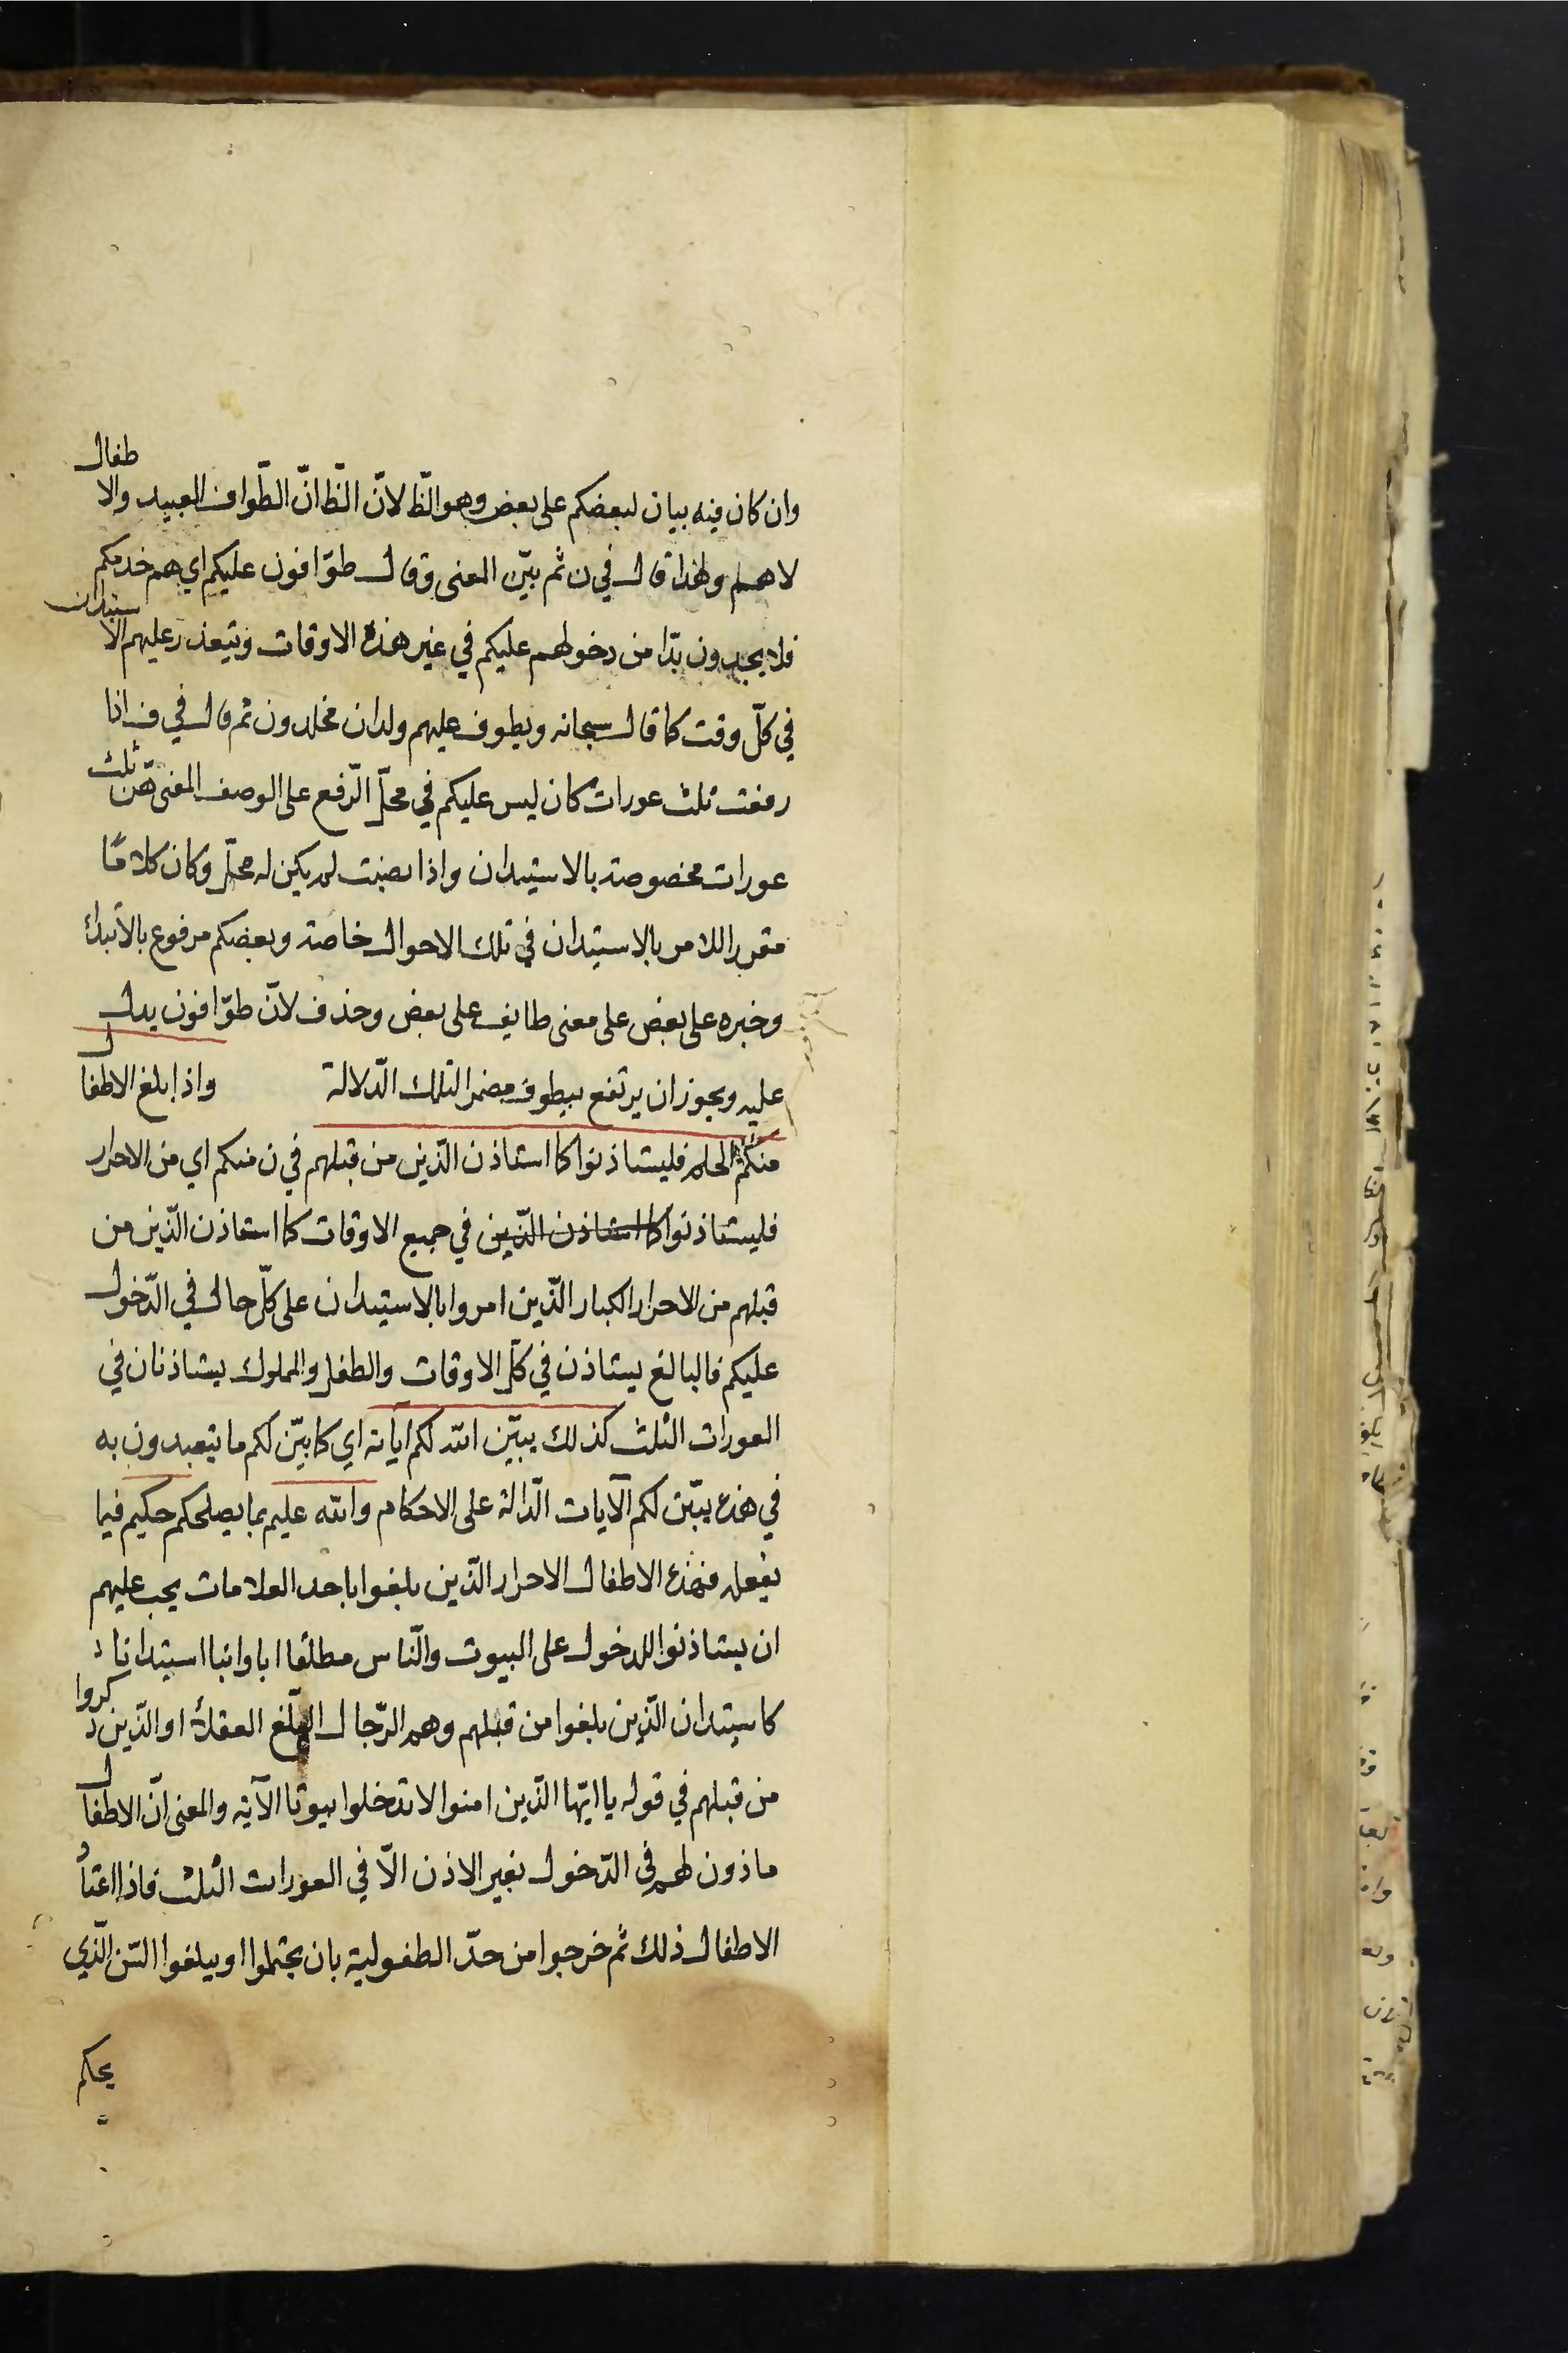 وان كان فيه بيان لبعضكم على بعض وهو الظّ لانّ الظّ انّ الطّواف العبيد والاطفال
لاهم ولهذا قال في ن ثم بيّن المعنى وقال طوّافون عليكم اي هم خدمكم
فلا يجدون بدّا من دخولهم عليكم في غير هذه الاوقات ويتعذر عليهم الاستيذان
في كلّ وقت كما قال سبحانه ويطوف عليهم ولدان مخلدون ثم قال في ف اذا
رفعت ثلث عورات كان ليس عليكم في محلّ الرّفع على الوصف المعنى هنّ ثلث
عورات مخصوصة بالاستيذان واذا نصبت لم يكن له محلّ وكان كلامًا
مقررا للامر بالاستيذان في تلك الاحوال خاصة وبعضكم مرفوع بالابتداء
وخبره على بعض على معنى طايف على بعض وحذف لانّ طوّافون يدل
عليه ويجوز ان يرتفع بيطوف مضمرا لتلك الدّلالة واذا بلغ الاطفال
منكم الحلم فليستاذنوا كما استاذن الّذين من قبلهم في ن منكم اي من الاحرار
فليستاذنوا كما استاذن الّذين في جميع الاوقات كما استاذن الّذين من
قبلهم من الاحرار الكبار الّذين امروا بالاستيذان على كلّ حال في الدّخول
عليكم فالبالغ يستاذن في كلّ الاوقات والطفل والمملوك يستاذنان في
العورات الثلث كذلك يبيّن الله لكم اياته اي كما بيّن لكم ما يتعبدون به
في هذه يبيّن لكم الآيات الدّالة على الاحكام والله عليم بما يصلحكم حكيم فيما
يفعله فهذه الاطفال الاحرار الّذين بلغوا باحد العلامات يجب عليهم
ان يستاذنوا للدخول على البيوت والنّاس مطلقا ابا واجنبيا استيذانا
كاستيذان الّذين بلغوا من قبلهم وهم الرّجال البلّغ العقلاء او الّذين ذكروا
من قبلهم في قوله يا ايّها الّذين امنوا لا تدخلوا بيوتا الآية والمعنى انّ الاطفال
ماذون لهم في الدّخول بغير الاذن الّا في العورات الثلث فاذا اعتاد
الاطفال ذلك ثم خرجوا من حدّ الطفولية بان يحتلموا او يبلغوا السّن الّذي
يحكم